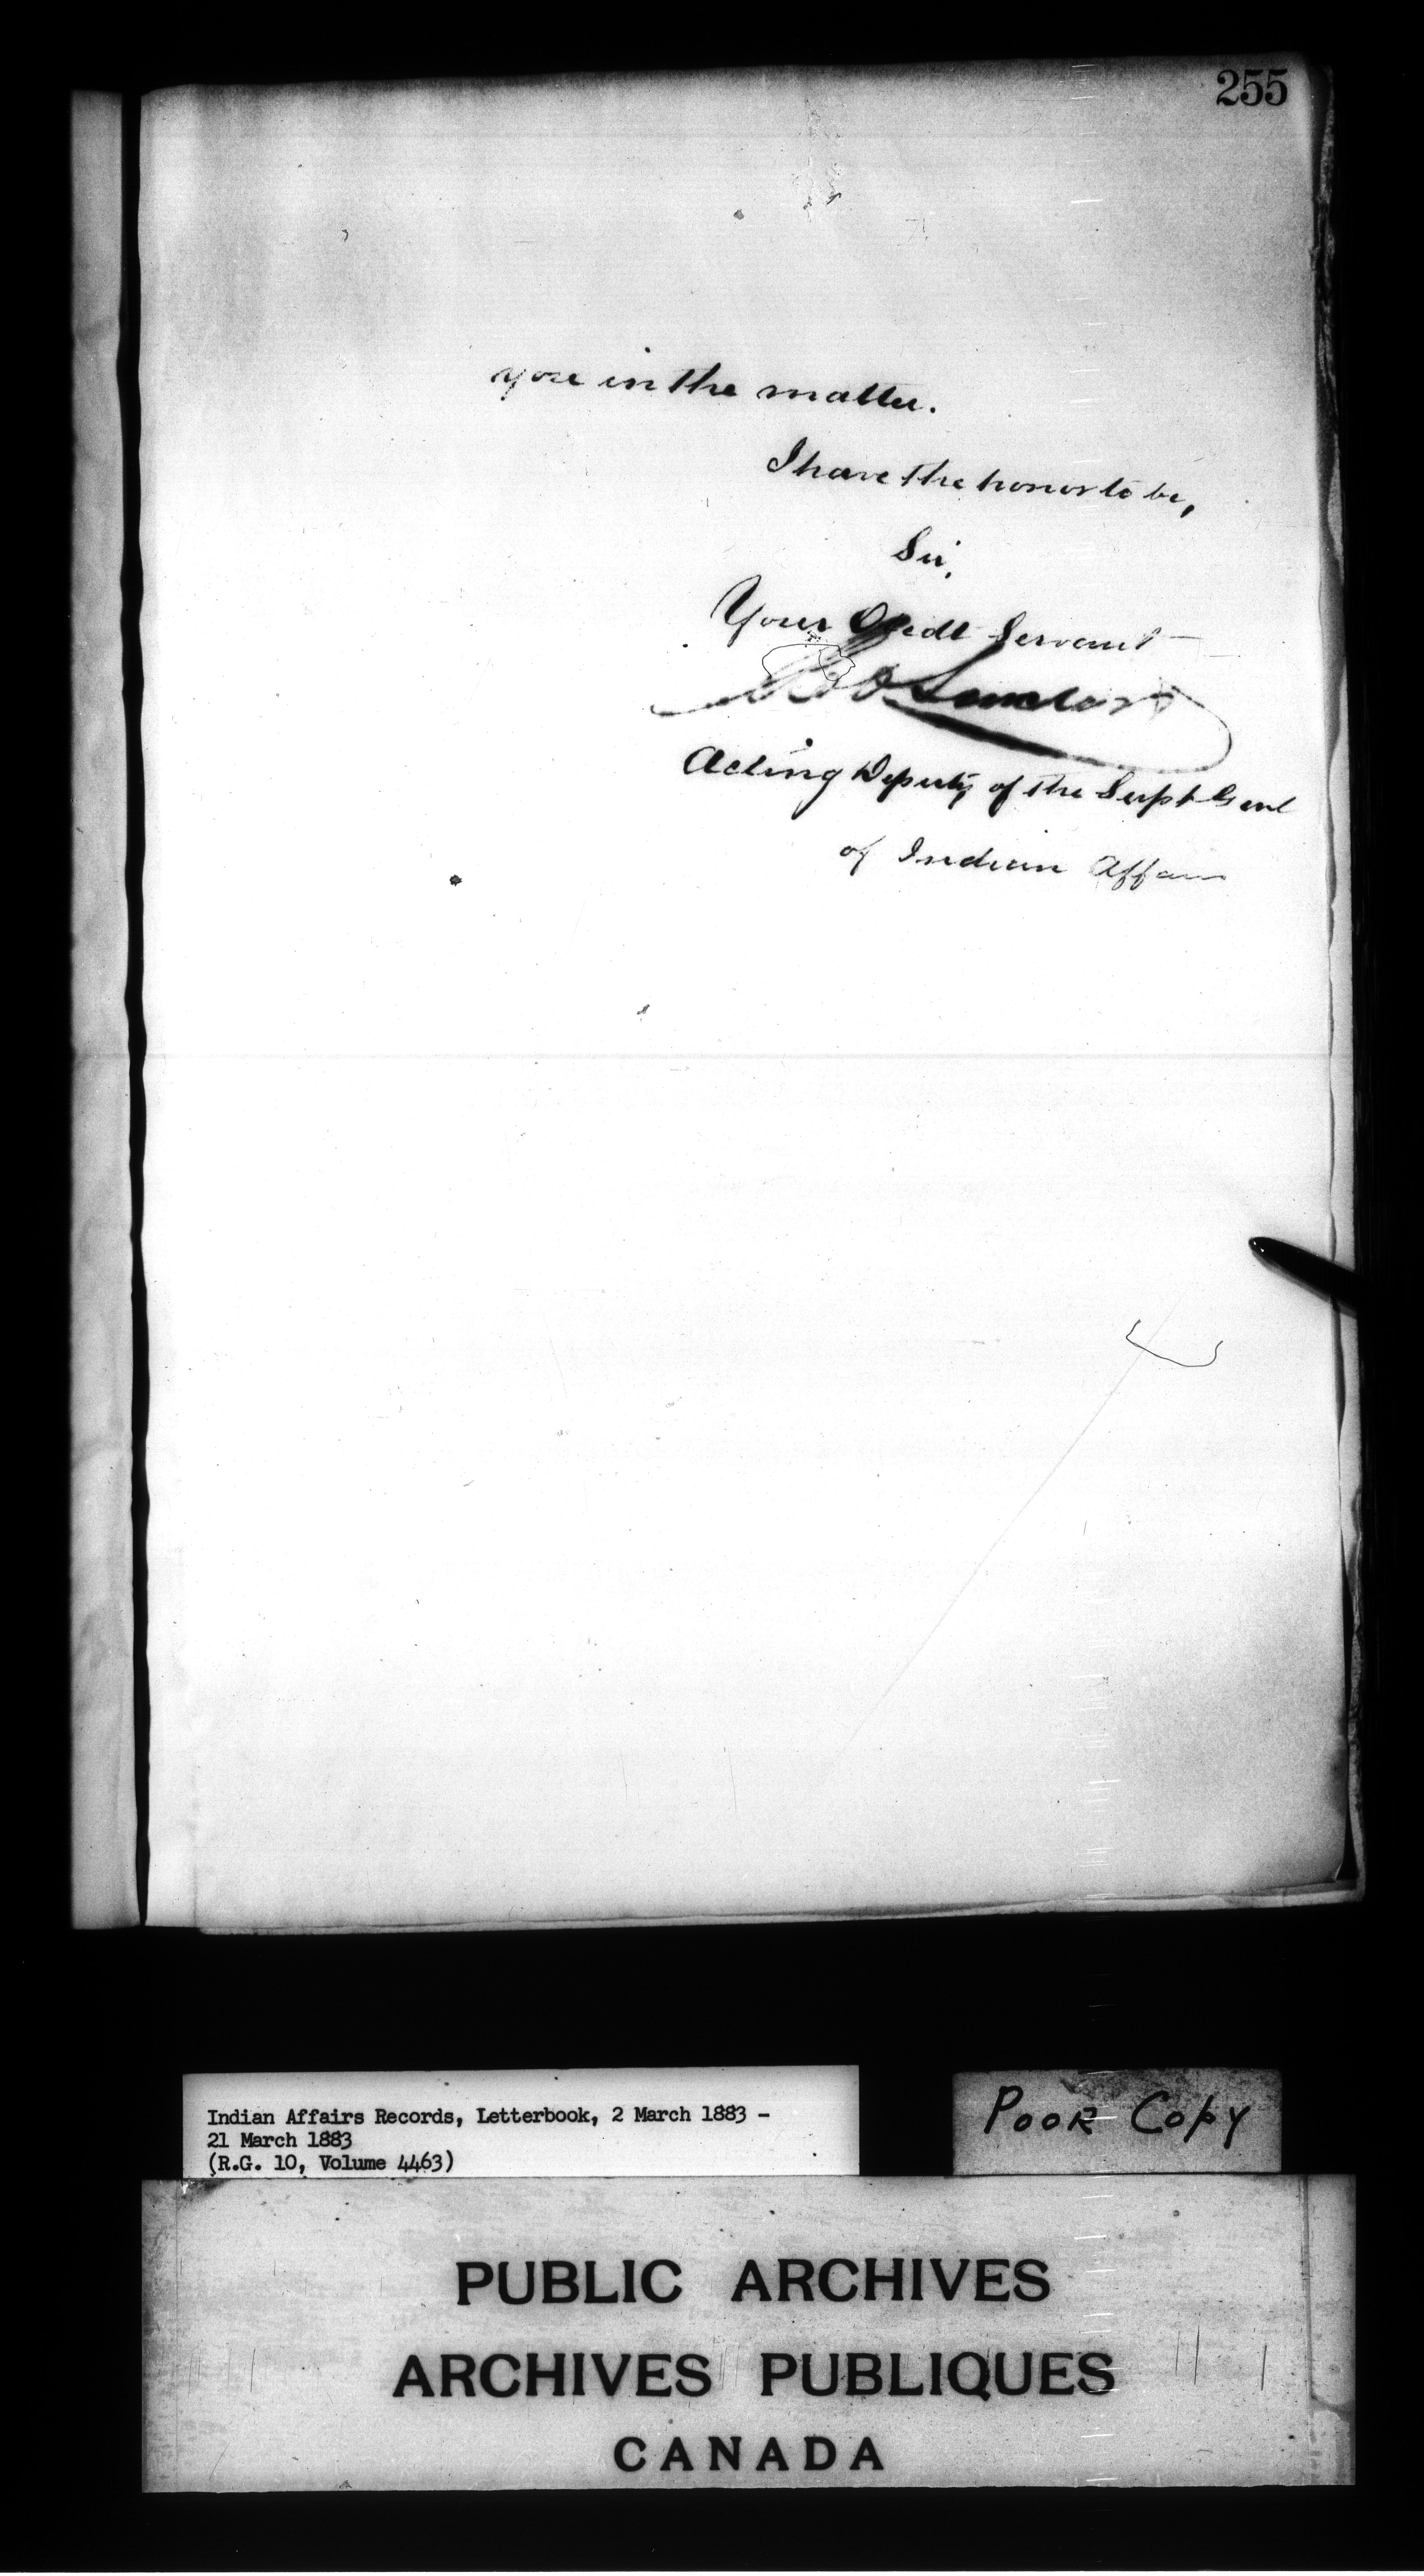 255
you in the matter.
I have the honor to be,
Sir,
Your Obedt Servant
Acting Deputy of the Supt Genl
of Indian Affairs
Indian Affairs Records, Letterbook, 2 March 1883 -
21 March 1883
(R.G. 10, Volume 4463)
POOR COPY
PUBLIC ARCHIVES
ARCHIVES PUBLIQUES
CANADA